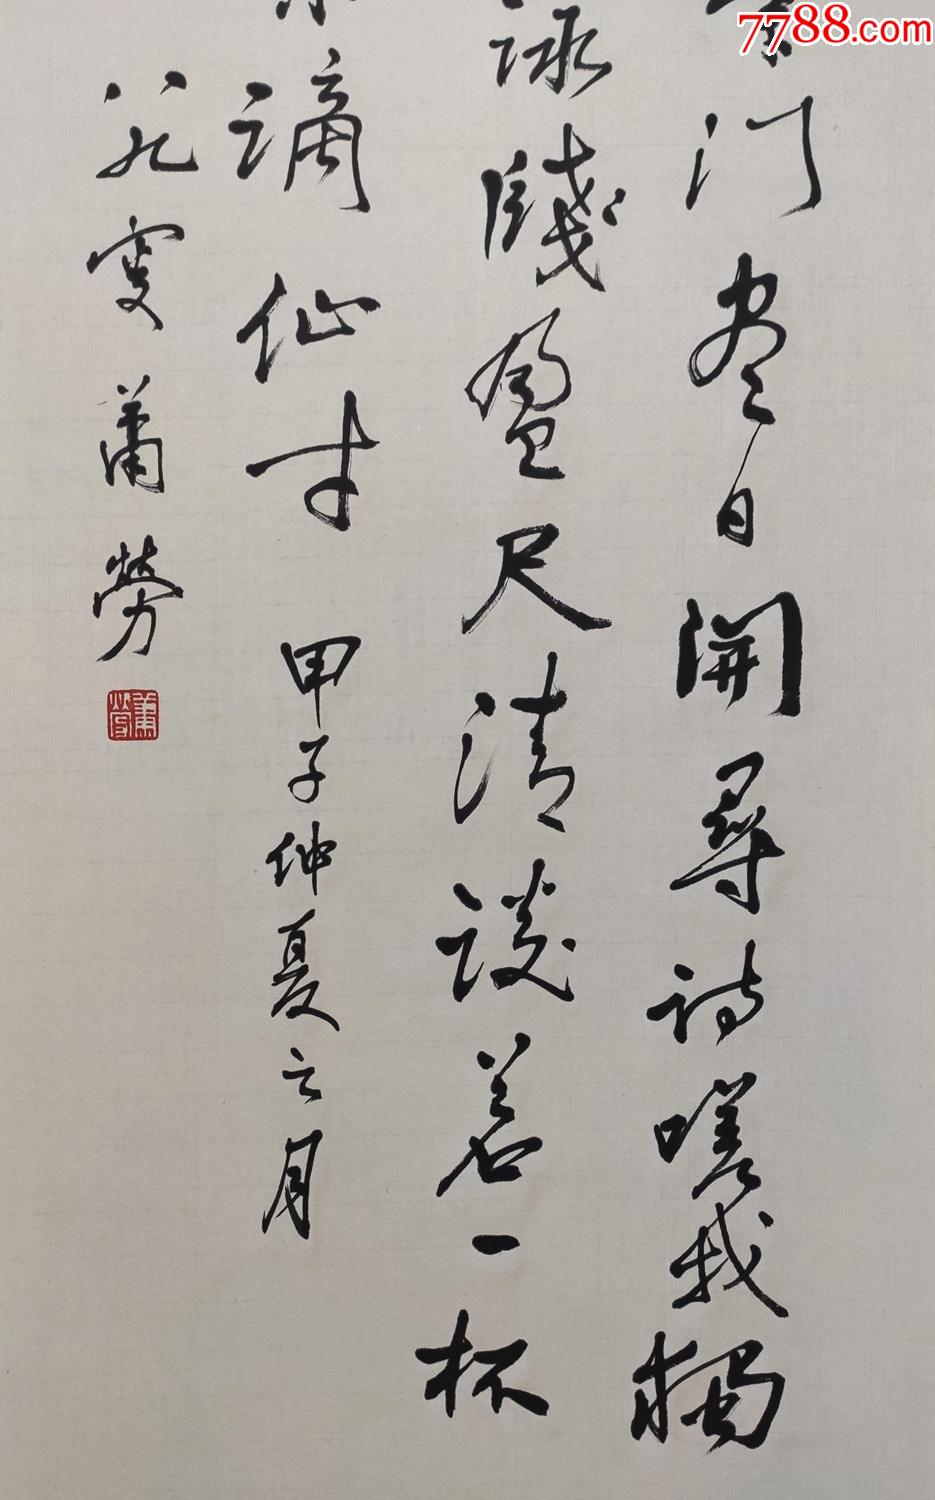 7788.com
门尽日開尋詩嗟我獨
詠牋盈尺清談茗一杯
謫仙才 甲子仲夏之月
八九叟蕭勞
蕭勞